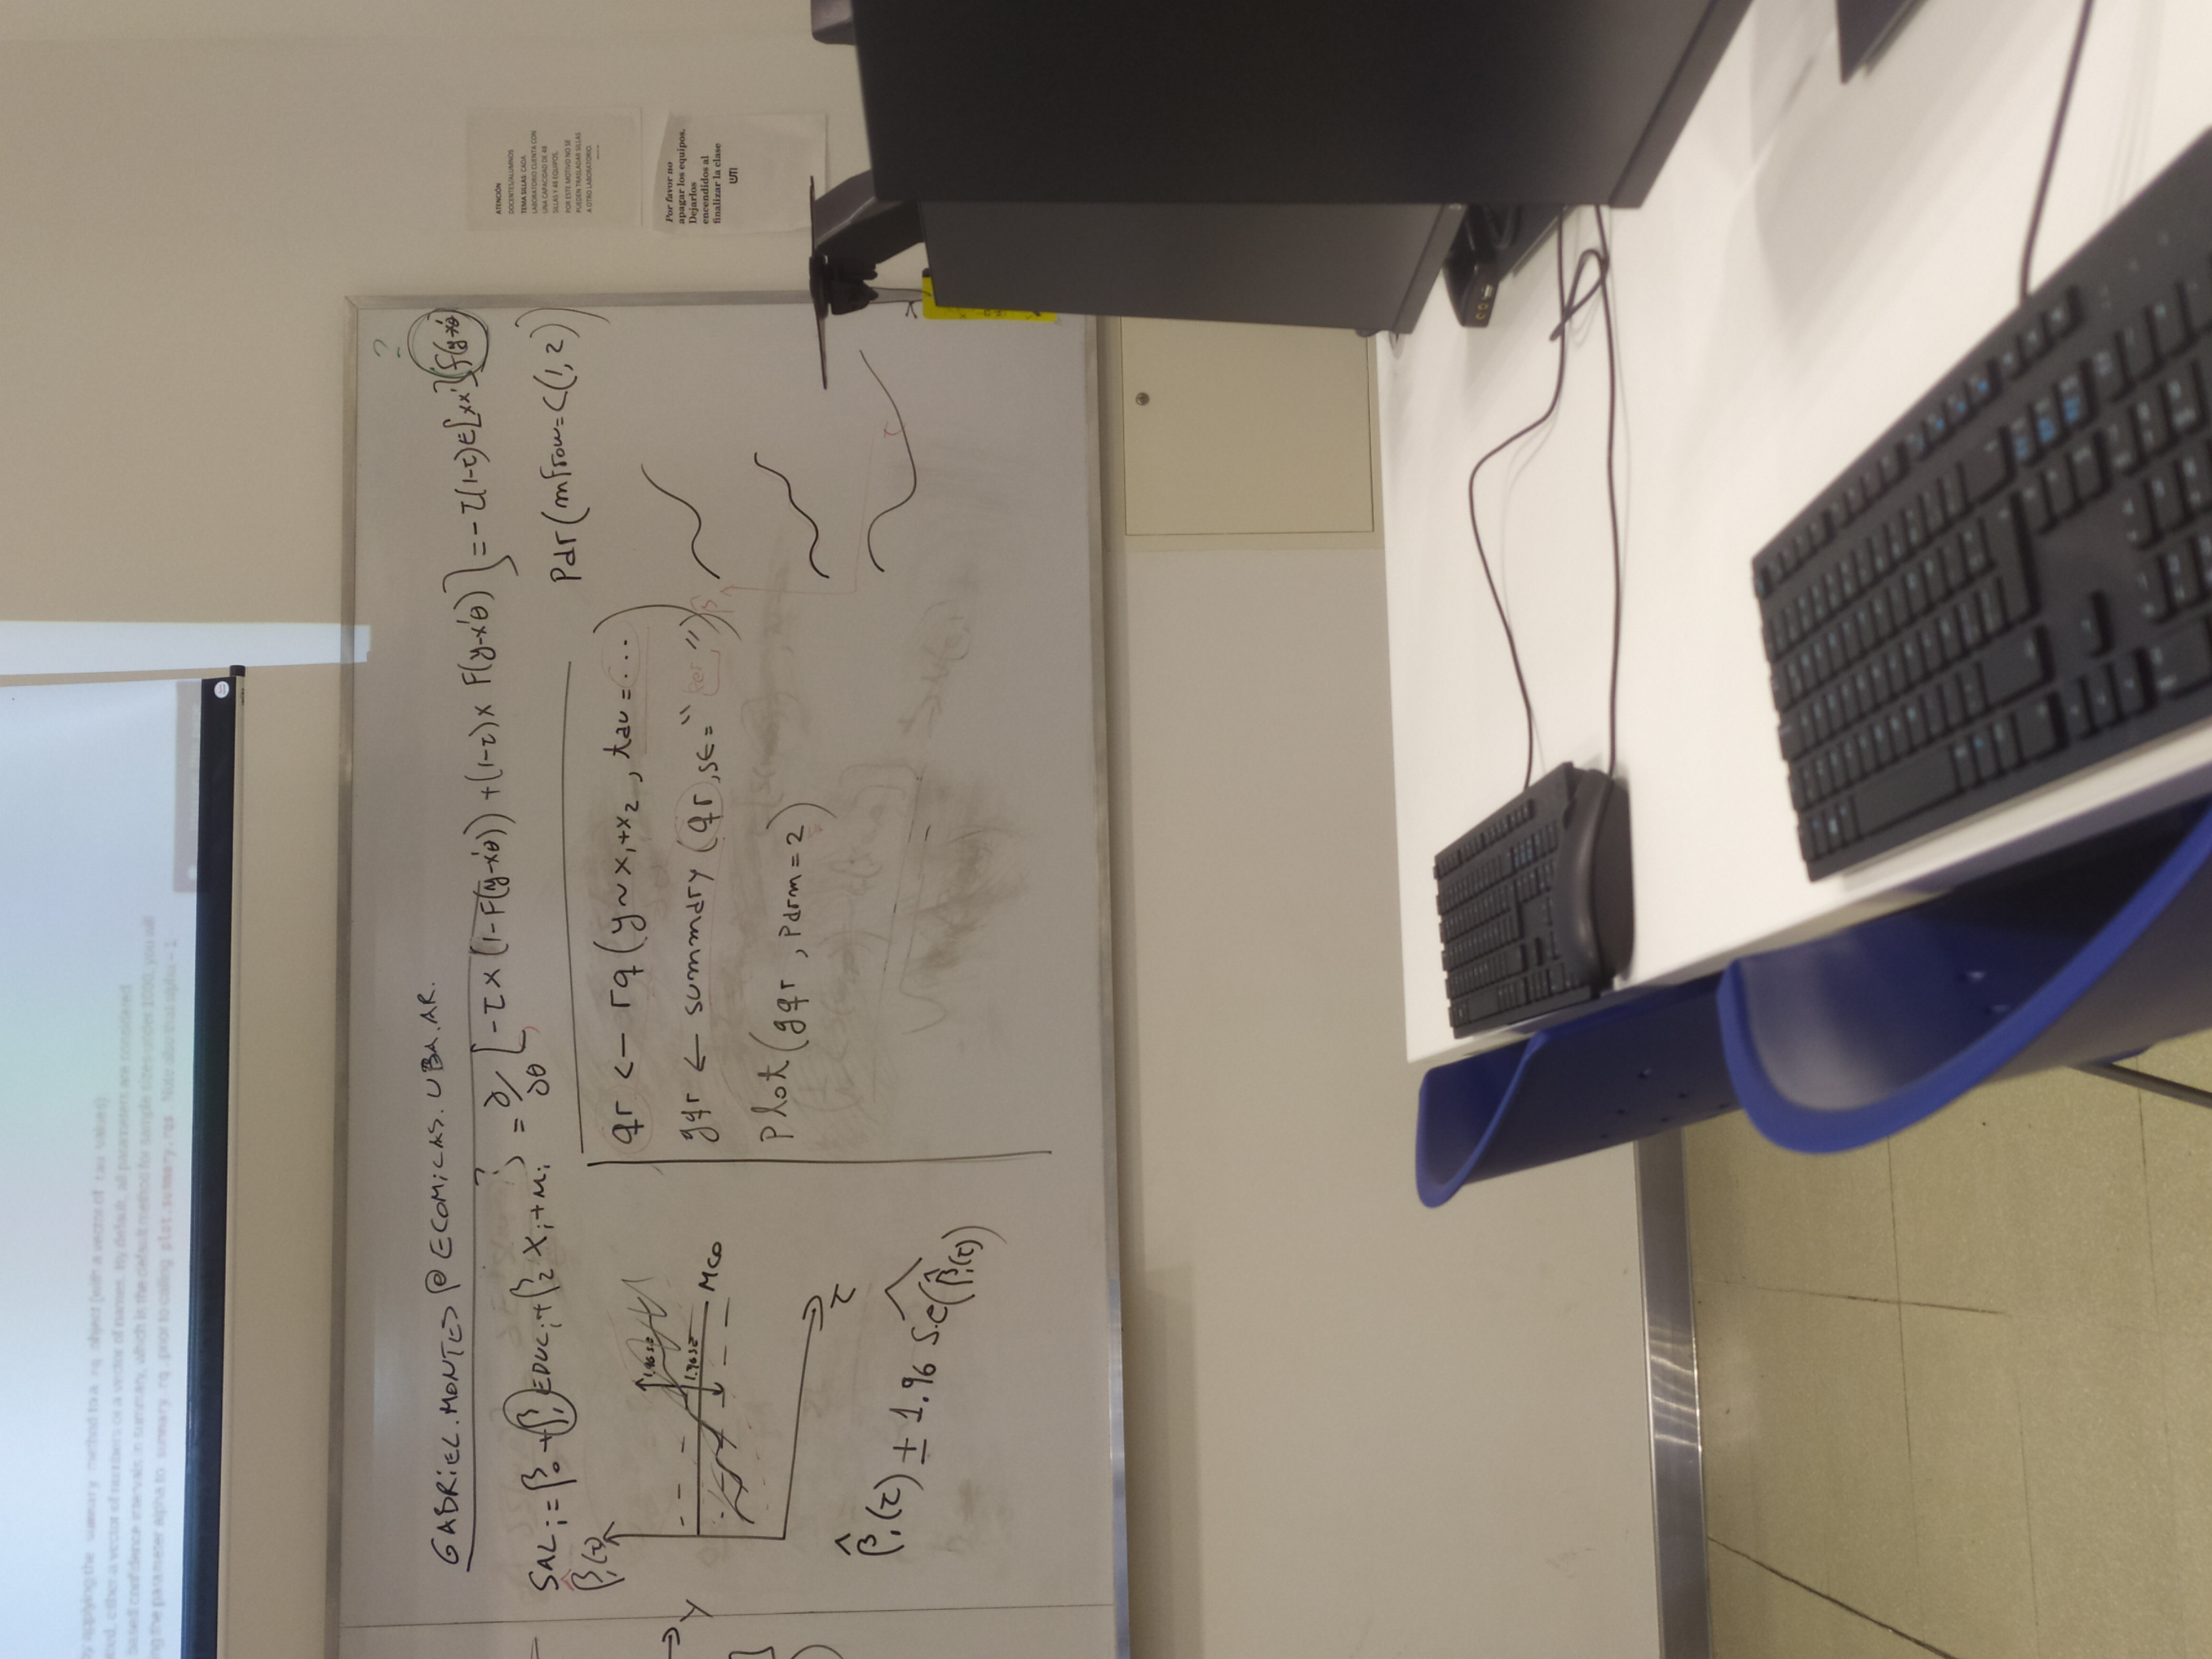 by applying the summary method to a rq object (with a vector of tau values).
either a vector of numbers or a vector of names. By default, all parameters are considered
based confidence intervals in summary, which is the default method for sample sizes under 1000, you will
the parameter alpha to summary.rq prior to calling plot.summary.rqs . Note also that alpha = 1
GABRIEL.MONTES@ECOMICAS.UBA.AR.
SAL i = β0 + β1 EDUC i + β2 X i + μ i
} = ∂/∂θ [-τ x (1-F(y-x'θ)) + (1-τ) x F(y-x'θ)] = -τ(1-τ)E[xx'] f(y-x'θ)
?
Par(mfrow=c(1,2))
β̂1(τ)
1.96 se
1.96 se
MCO
τ
β̂1(τ) ± 1.96 s.e(β̂1(τ))
qr <- rq(y~x1+x2, tau=...)
gqr <- summary(qr, se="ker")
plot(gqr, parm=2)
β
τ
y
ATENCIÓN
DOCENTES/ALUMNOS
TEMA SILLAS: CADA
LABORATORIO CUENTA CON
UNA CAPACIDAD DE 48
SILLAS Y 48 EQUIPOS,
POR ESTE MOTIVO NO SE
PUEDEN TRASLADAR SILLAS
A OTRO LABORATORIO.
Por favor no
apagar los equipos.
Dejarlos
encendidos al
finalizar la clase
UTI